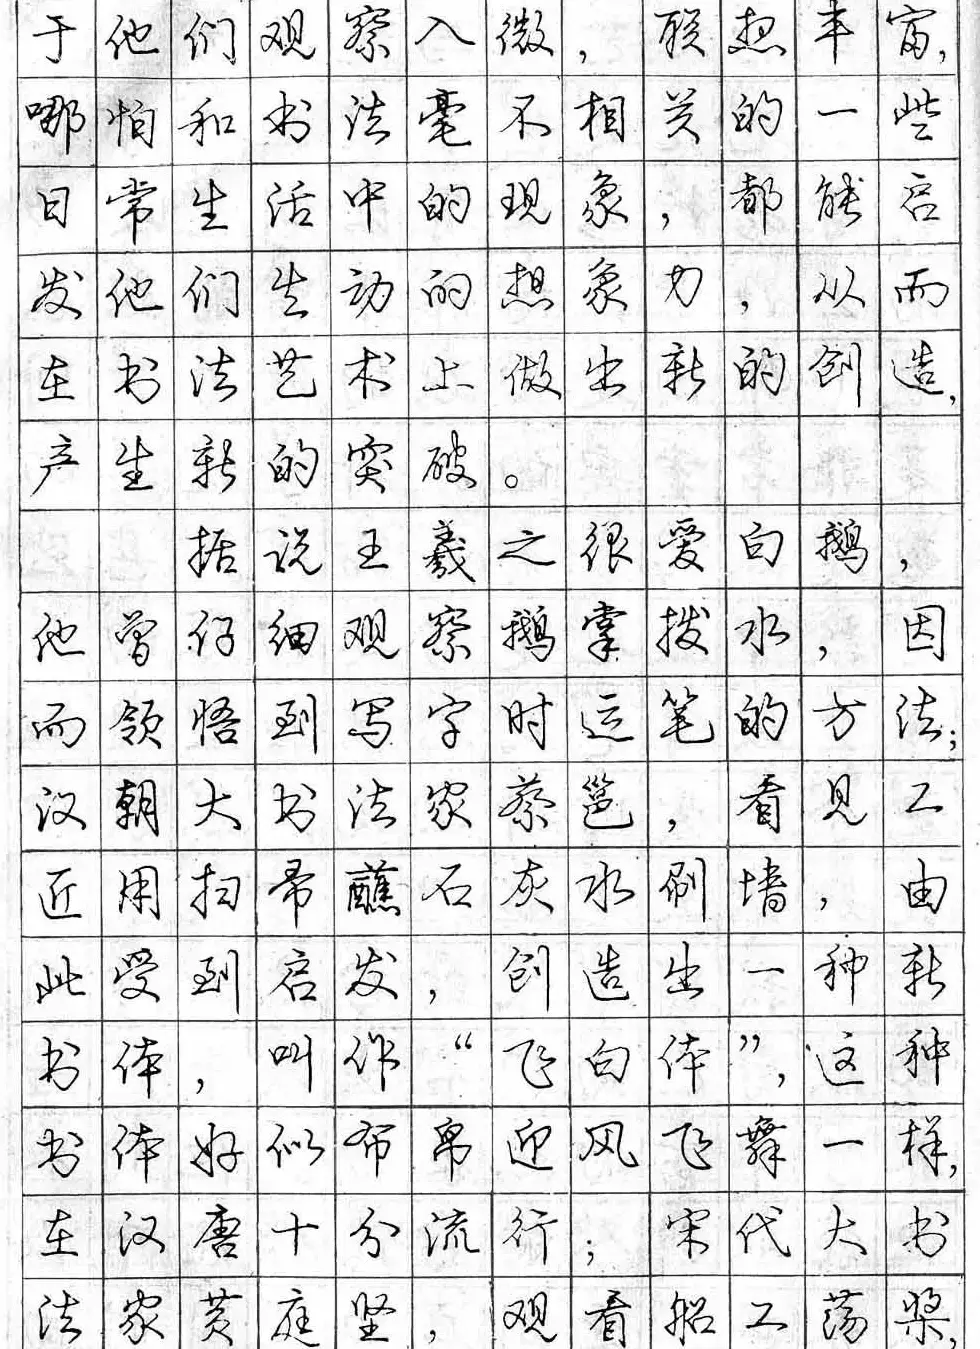 于他们观察入微，联想丰富，
哪怕和书法毫不相关的一些
日常生活中的现象，都能启
发他们生动的想象力，从而
在书法艺术上做出新的创造，
产生新的突破。
据说王羲之很爱白鹅，
他曾仔细观察鹅掌拨水，因
而领悟到写字时运笔的方法；
汉朝大书法家蔡邕，看见工
匠用扫帚蘸石灰水刷墙，由
此受到启发，创造出一种新
书体，叫作“飞白体”，这种
书体好似布帛迎风飞舞一样，
在汉唐十分流行；宋代大书
法家黄庭坚，观看船工荡桨，